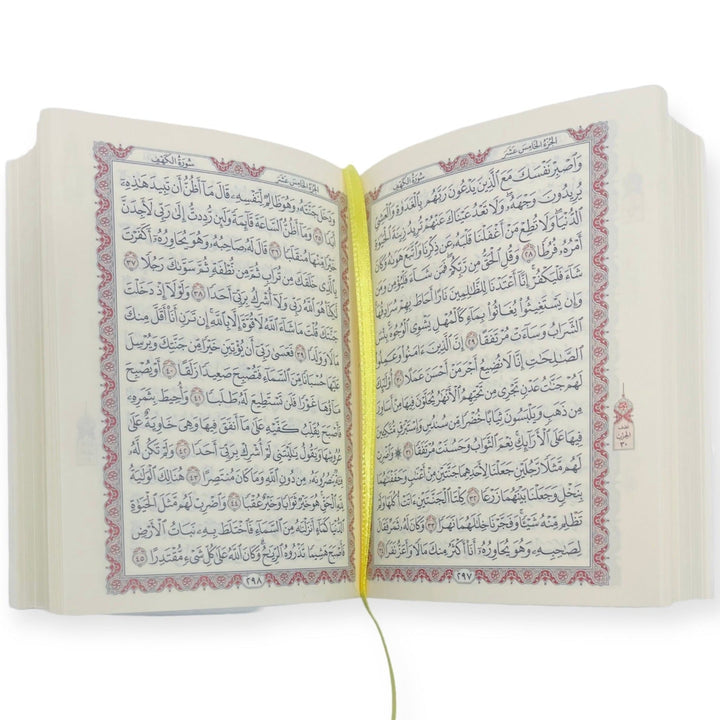 الجُزْءُ الخَامِسَ عَشَرَ سُورَةُ الكَهْفِ
وَٱصْبِرْ نَفْسَكَ مَعَ ٱلَّذِينَ يَدْعُونَ رَبَّهُم بِٱلْغَدَوٰةِ وَٱلْعَشِيِّ
يُرِيدُونَ وَجْهَهُۥ وَلَا تَعْدُ عَيْنَاكَ عَنْهُمْ تُرِيدُ زِينَةَ ٱلْحَيَوٰةِ
ٱلدُّنْيَا وَلَا تُطِعْ مَنْ أَغْفَلْنَا قَلْبَهُۥ عَن ذِكْرِنَا وَٱتَّبَعَ هَوَىٰهُ وَكَانَ
أَمْرُهُۥ فُرُطًا ٢٨ وَقُلِ ٱلْحَقُّ مِن رَّبِّكُمْ فَمَن شَآءَ فَلْيُؤْمِن وَمَن
شَآءَ فَلْيَكْفُرْ إِنَّآ أَعْتَدْنَا لِلظَّٰلِمِينَ نَارًا أَحَاطَ بِهِمْ سُرَادِقُهَا
وَإِن يَسْتَغِيثُوا۟ يُغَاثُوا۟ بِمَآءٍ كَٱلْمُهْلِ يَشْوِى ٱلْوُجُوهَ بِئْسَ
ٱلشَّرَابُ وَسَآءَتْ مُرْتَفَقًا ٢٩ إِنَّ ٱلَّذِينَ ءَامَنُوا۟ وَعَمِلُوا۟
ٱلصَّٰلِحَٰتِ إِنَّا لَا نُضِيعُ أَجْرَ مَنْ أَحْسَنَ عَمَلًا ٣٠ أُو۟لَٰٓئِكَ
لَهُمْ جَنَّٰتُ عَدْنٍ تَجْرِى مِن تَحْتِهِمُ ٱلْأَنْهَٰرُ يُحَلَّوْنَ فِيهَا مِنْ أَسَاوِرَ
مِن ذَهَبٍ وَيَلْبَسُونَ ثِيَابًا خُضْرًا مِّن سُندُسٍ وَإِسْتَبْرَقٍ مُّتَّكِـِٔينَ
فِيهَا عَلَى ٱلْأَرَآئِكِ نِعْمَ ٱلثَّوَابُ وَحَسُنَتْ مُرْتَفَقًا ٣١ ۞ وَٱضْرِبْ
لَهُم مَّثَلًا رَّجُلَيْنِ جَعَلْنَا لِأَحَدِهِمَا جَنَّتَيْنِ مِنْ أَعْنَٰبٍ وَحَفَفْنَٰهُمَا
بِنَخْلٍ وَجَعَلْنَا بَيْنَهُمَا زَرْعًا ٣٢ كِلْتَا ٱلْجَنَّتَيْنِ ءَاتَتْ أُكُلَهَا وَلَمْ
تَظْلِم مِّنْهُ شَيْـًٔا وَفَجَّرْنَا خِلَٰلَهُمَا نَهَرًا ٣٣ وَكَانَ لَهُۥ ثَمَرٌ فَقَالَ
لِصَٰحِبِهِۦ وَهُوَ يُحَاوِرُهُۥٓ أَنَا۠ أَكْثَرُ مِنكَ مَالًا وَأَعَزُّ نَفَرًا ٣٤
نصف
الحزب
٣٠
٢٩٧
الجُزْءُ الخَامِسَ عَشَرَ سُورَةُ الكَهْفِ
وَدَخَلَ جَنَّتَهُۥ وَهُوَ ظَالِمٌ لِّنَفْسِهِۦ قَالَ مَآ أَظُنُّ أَن تَبِيدَ هَٰذِهِۦٓ
أَبَدًا ٣٥ وَمَآ أَظُنُّ ٱلسَّاعَةَ قَآئِمَةً وَلَئِن رُّدِدتُّ إِلَىٰ رَبِّى لَأَجِدَنَّ
خَيْرًا مِّنْهَا مُنقَلَبًا ٣٦ قَالَ لَهُۥ صَاحِبُهُۥ وَهُوَ يُحَاوِرُهُۥٓ أَكَفَرْتَ
بِٱلَّذِى خَلَقَكَ مِن تُرَابٍ ثُمَّ مِن نُّطْفَةٍ ثُمَّ سَوَّىٰكَ رَجُلًا ٣٧
لَّٰكِنَّا۠ هُوَ ٱللَّهُ رَبِّى وَلَآ أُشْرِكُ بِرَبِّىٓ أَحَدًا ٣٨ وَلَوْلَآ إِذْ دَخَلْتَ
جَنَّتَكَ قُلْتَ مَا شَآءَ ٱللَّهُ لَا قُوَّةَ إِلَّا بِٱللَّهِ إِن تَرَنِ أَنَا۠ أَقَلَّ مِنكَ
مَالًا وَوَلَدًا ٣٩ فَعَسَىٰ رَبِّىٓ أَن يُؤْتِيَنِ خَيْرًا مِّن جَنَّتِكَ وَيُرْسِلَ
عَلَيْهَا حُسْبَانًا مِّنَ ٱلسَّمَآءِ فَتُصْبِحَ صَعِيدًا زَلَقًا ٤٠ أَوْ يُصْبِحَ
مَآؤُهَا غَوْرًا فَلَن تَسْتَطِيعَ لَهُۥ طَلَبًا ٤١ وَأُحِيطَ بِثَمَرِهِۦ
فَأَصْبَحَ يُقَلِّبُ كَفَّيْهِ عَلَىٰ مَآ أَنفَقَ فِيهَا وَهِىَ خَاوِيَةٌ عَلَىٰ
عُرُوشِهَا وَيَقُولُ يَٰلَيْتَنِى لَمْ أُشْرِكْ بِرَبِّىٓ أَحَدًا ٤٢ وَلَمْ تَكُن لَّهُۥ
فِئَةٌ يَنصُرُونَهُۥ مِن دُونِ ٱللَّهِ وَمَا كَانَ مُنتَصِرًا ٤٣ هُنَالِكَ ٱلْوَلَٰيَةُ
لِلَّهِ ٱلْحَقِّ هُوَ خَيْرٌ ثَوَابًا وَخَيْرٌ عُقْبًا ٤٤ وَٱضْرِبْ لَهُم مَّثَلَ ٱلْحَيَوٰةِ
ٱلدُّنْيَا كَمَآءٍ أَنزَلْنَٰهُ مِنَ ٱلسَّمَآءِ فَٱخْتَلَطَ بِهِۦ نَبَاتُ ٱلْأَرْضِ
فَأَصْبَحَ هَشِيمًا تَذْرُوهُ ٱلرِّيَٰحُ وَكَانَ ٱللَّهُ عَلَىٰ كُلِّ شَىْءٍ مُّقْتَدِرًا ٤٥
٢٩٨